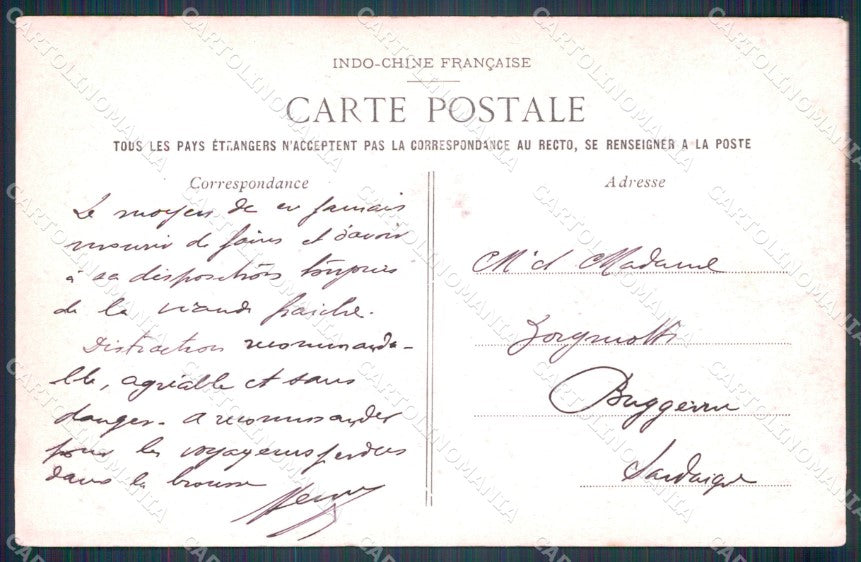 INDO-CHINE FRANÇAISE
CARTE POSTALE
TOUS LES PAYS ÉTRANGERS N'ACCEPTENT PAS LA CORRESPONDANCE AU RECTO, SE RENSEIGNER A LA POSTE
Correspondance
Le moyen de ne jamais
mourir de faim et d'avoir
à sa disposition toujours
de la viande fraîche.
Distraction recommanda-
ble, agréable et sans
danger. A recommander
pour les voyageurs perdus
dans la brousse
Adresse
M et Madame
Buggerru
Sardaigne
CARTOLINOMANIA